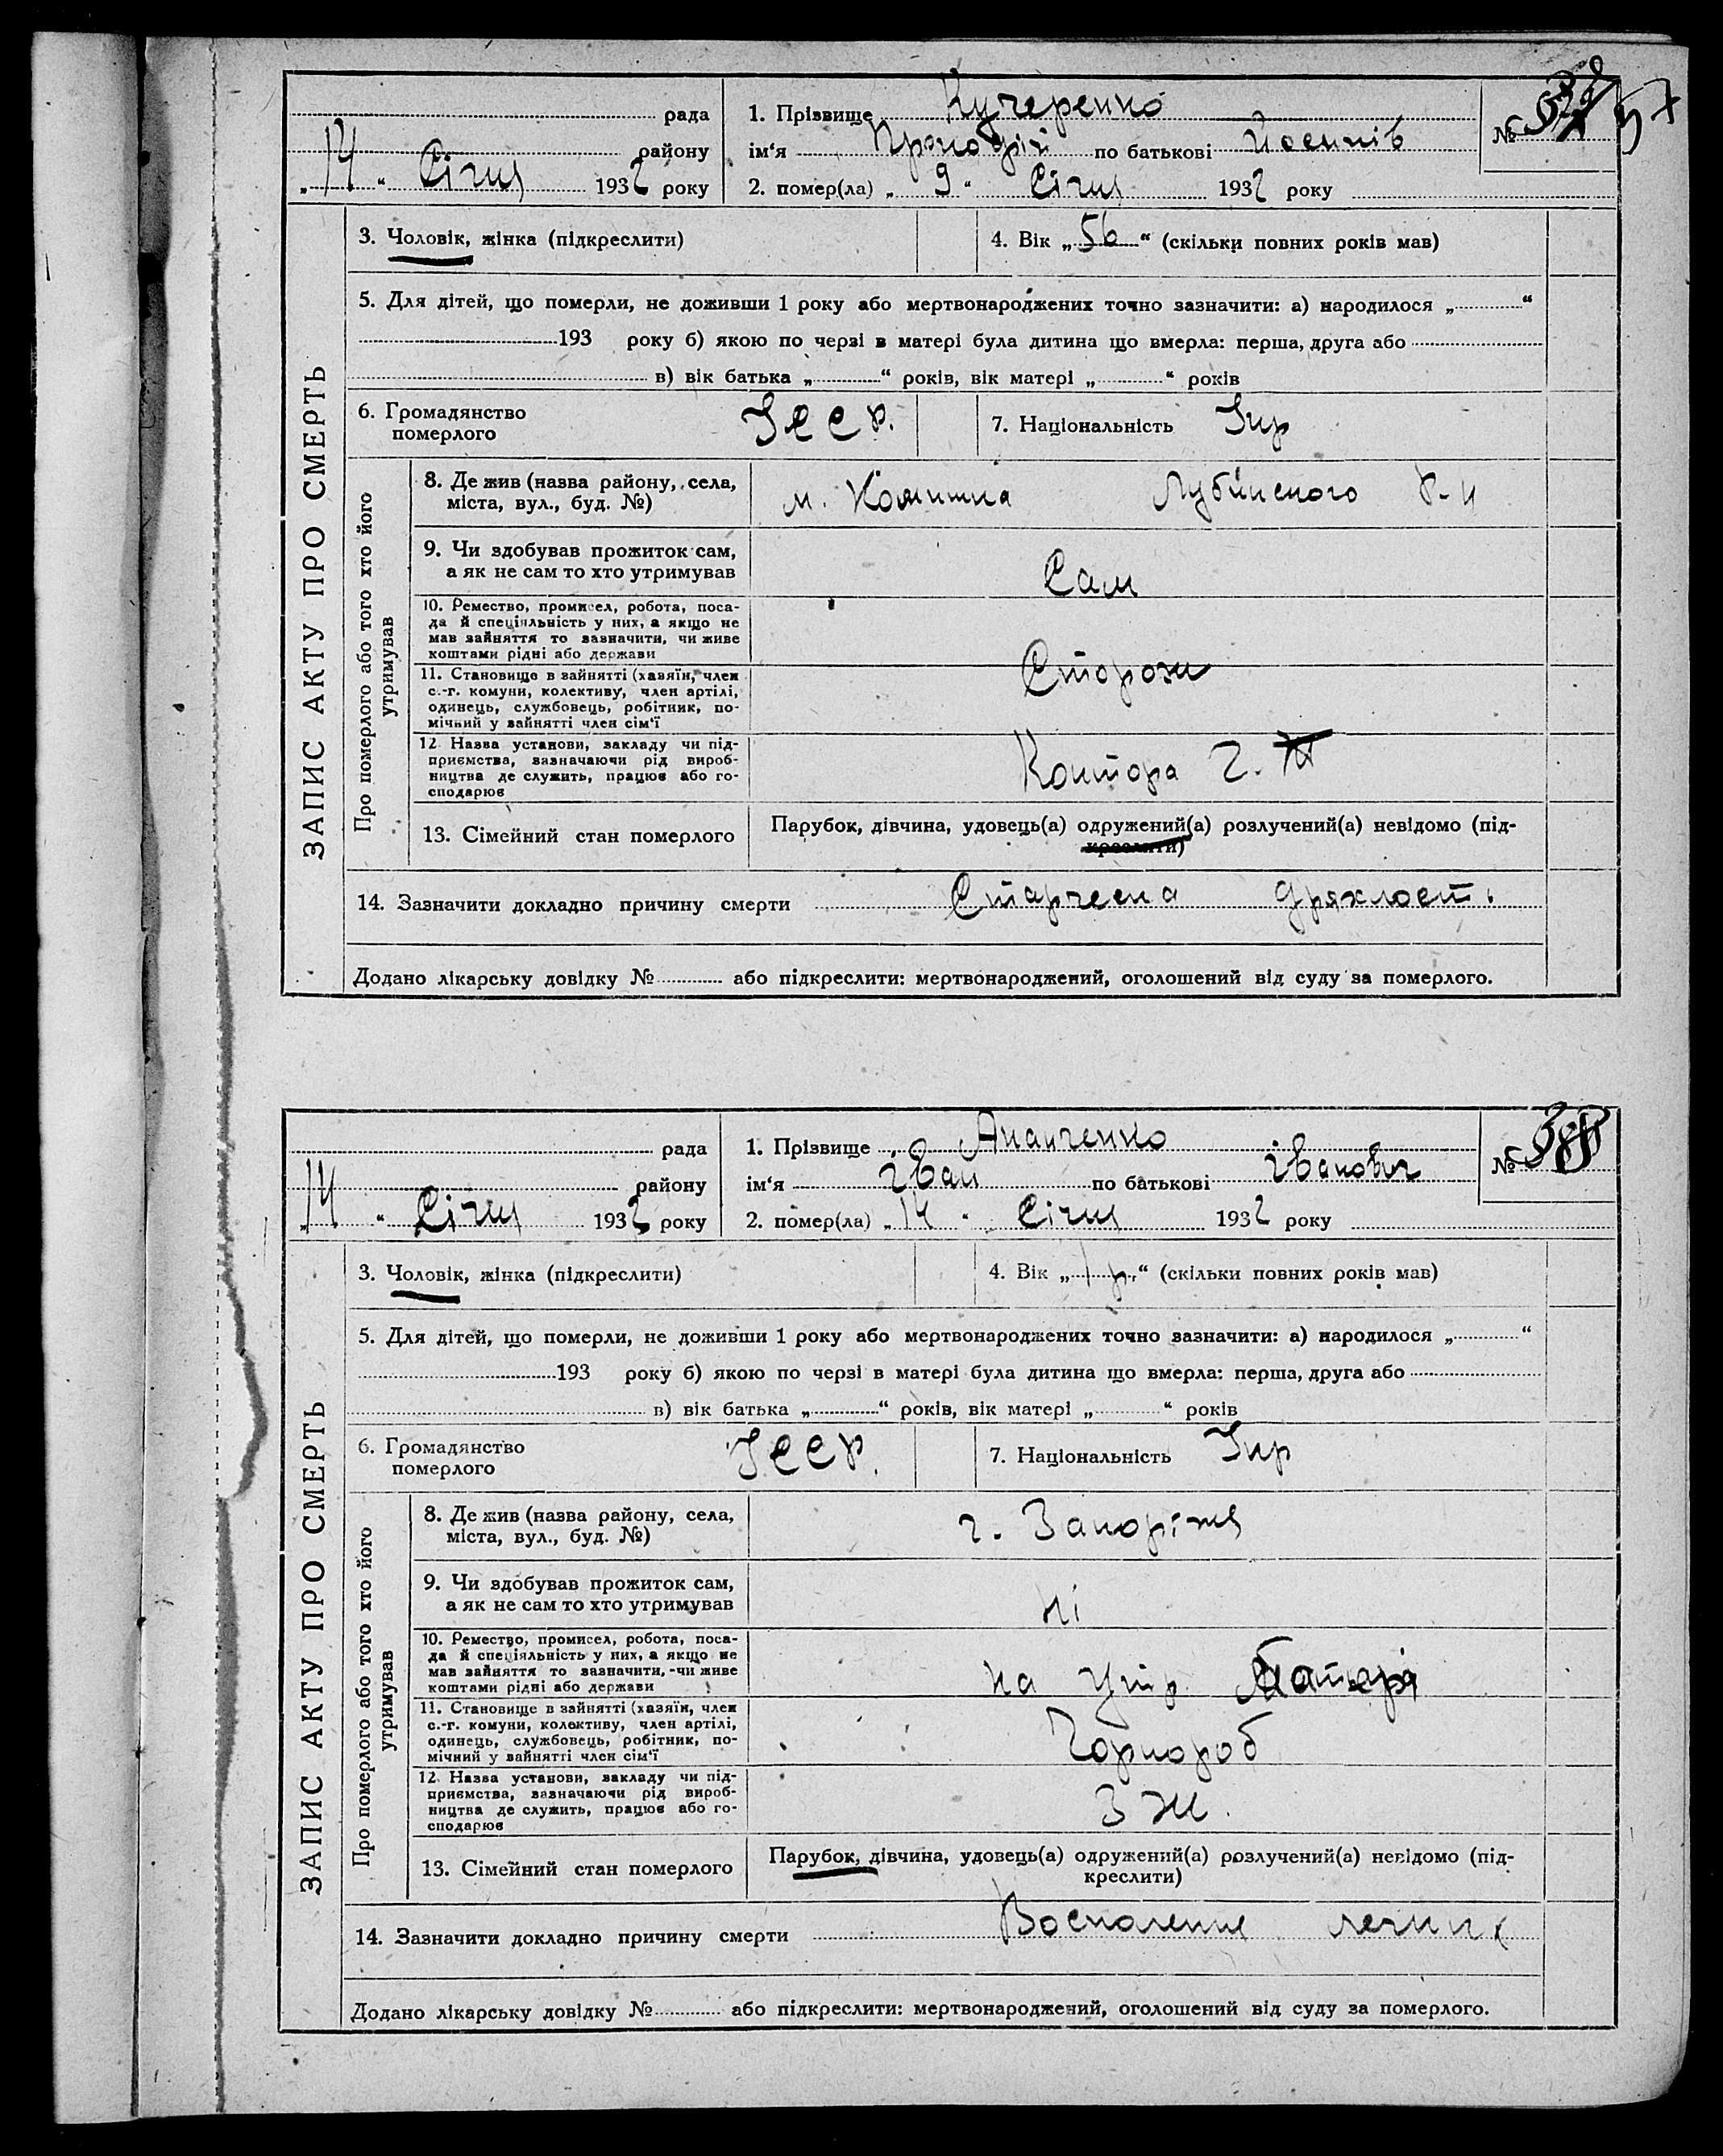 рада
району
„ 14 “ Січня 1932 року
1. Прізвище Кучеренко
ім‘я по батькові Йосипів
2. помер(ла) „ 9 “ Січня 1932 року
№ 37
ЗАПИС АКТУ ПРО СМЕРТЬ
3. Чоловік, жінка (підкреслити)
4. Вік „ 56 “ (скільки повних років мав)
5. Для дітей, що померли, не доживши 1 року або мертвонароджених точно зазначити: а) народилося „ “
193 року б) якою по черзі в матері була дитина що вмерла: перша, друга або
в) вік батька „ “ років, вік матері „ “ років
6. Громадянство
померлого
УССР.
7. Національність Укр
Про померлого або того хто його
утримував
8. Де жив (назва району, села,
міста, вул., буд. №)
м. Комишна р-н
9. Чи здобував прожиток сам,
а як не сам то хто утримував
Сам
10. Ремество, промисел, робота, поса-
да й спеціяльність у них, а якщо не
мав зайняття то зазначити, чи живе
коштами рідні або держави
11. Становище в зайнятті (хазяїн, член
с.-г. комуни, колективу, член артілі,
одинець, службовець, робітник, по-
мічний у зайнятті член сім‘ї
Сторож
12 Назва установи, закладу чи під-
приємства, зазначаючи рід вироб-
ництва де служить, працює або го-
сподарює
Контора
13. Сімейний стан померлого
Парубок, дівчина, удовець(а) одружений(а) розлучений(а) невідомо (під-
креслити)
14. Зазначити докладно причину смерти Старческа дряхлость
Додано лікарську довідку № або підкреслити: мертвонароджений, оголошений від суду за померлого.
рада
району
„ 14 “ Січня 1932 року
1. Прізвище Ананченко
ім‘я Іван по батькові Іванович
2. помер(ла) „ 14 “ Січня 1932 року
№ 38
ЗАПИС АКТУ ПРО СМЕРТЬ
3. Чоловік, жінка (підкреслити)
4. Вік „ 1 р. “ (скільки повних років мав)
5. Для дітей, що померли, не доживши 1 року або мертвонароджених точно зазначити: а) народилося „ “
193 року б) якою по черзі в матері була дитина що вмерла: перша, друга або
в) вік батька „ “ років, вік матері „ “ років
6. Громадянство
померлого
УССР.
7. Національність Укр
Про померлого або того хто його
утримував
8. Де жив (назва району, села,
міста, вул., буд. №)
г. Запоріжя
9. Чи здобував прожиток сам,
а як не сам то хто утримував
ні
10. Ремество, промисел, робота, поса-
да й спеціяльність у них, а якщо не
мав зайняття то зазначити, чи живе
коштами рідні або держави
на утр. матері
11. Становище в зайнятті (хазяїн, член
с.-г. комуни, колективу, член артілі,
одинець, службовець, робітник, по-
мічний у зайнятті член сім‘ї
Чорнороб
12. Назва установи, закладу чи під-
приємства, зазначаючи рід вироб-
ництва де служить, працює або го-
сподарює
13. Сімейний стан померлого
Парубок, дівчина, удовець(а) одружений(а) розлучений(а) невідомо (під-
креслити)
14. Зазначити докладно причину смерти Воспаление легких
Додано лікарську довідку № або підкреслити: мертвонароджений, оголошений від суду за померлого.